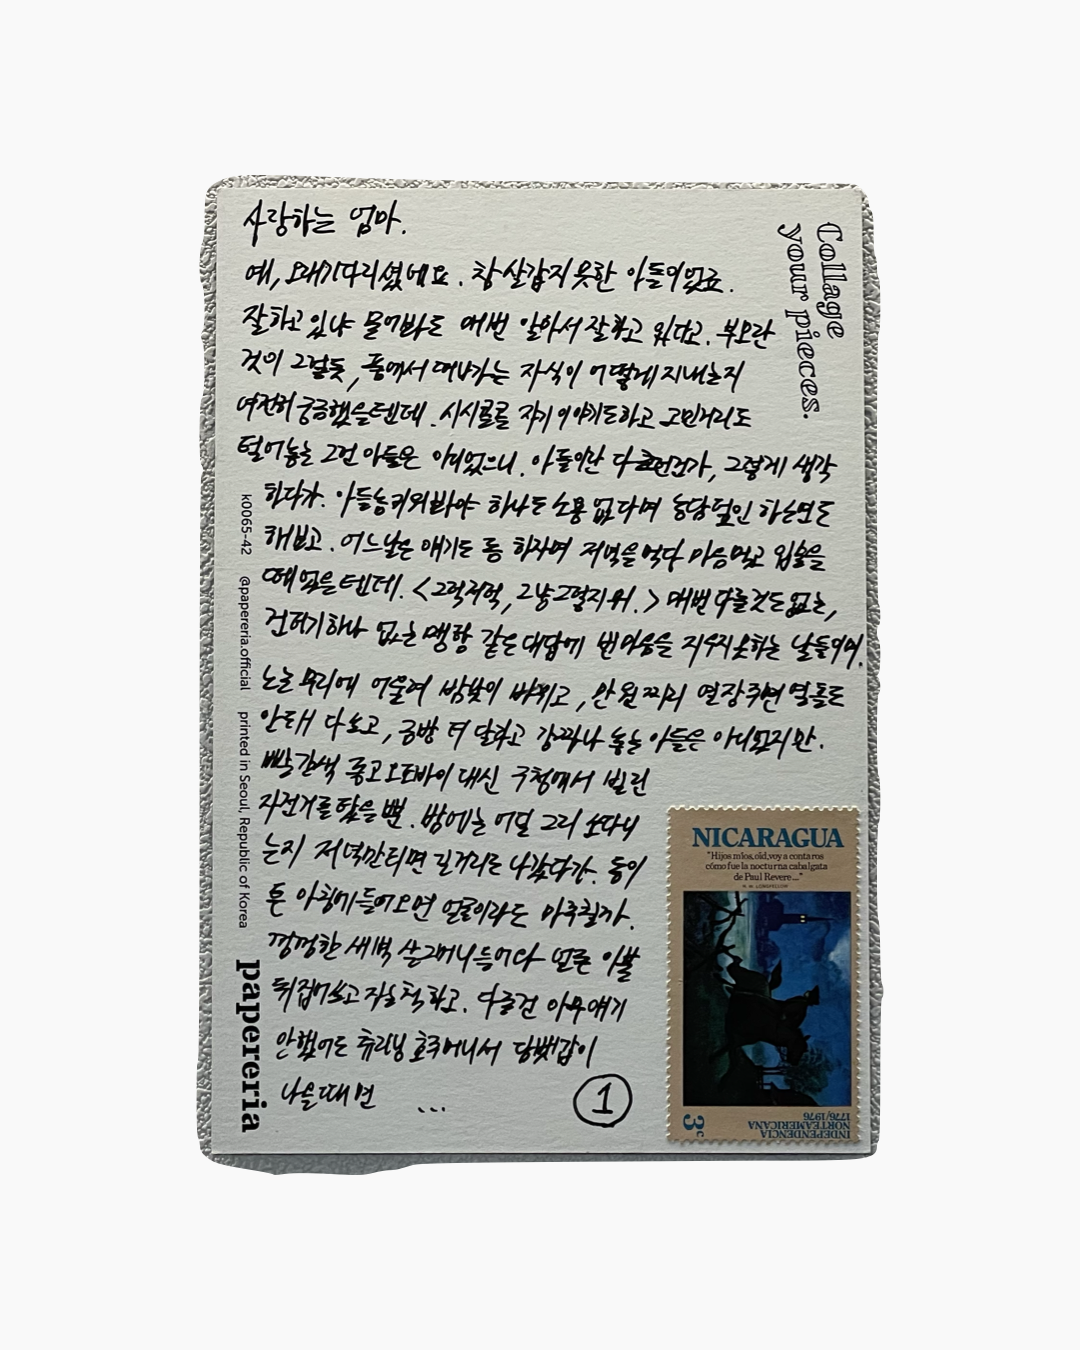 사랑하는 엄마.
예, 오래기다리셨네요. 참 살갑지 못한 아들이었죠.
잘하고 있냐 물어봐도 매번 알아서 잘하고 있다고. 부모란
것이 그럴듯, 품에서 떠나가는 자식이 어떻게 지내는지
여전히 궁금했을텐데. 시시콜콜 자기 이야기도하고 고민거리도
털어놓는 그런 아들은 아니었으니. 아들이란 다 그런건가, 그렇게 생각
하다가. 아들놈 키워봐야 하나도 소용 없다며 농담 덜인 하는면도
해보고. 어느날은 얘기도 통 하자며 저녁을 먹다 마음먹고 입술을
떼었을텐데. <그럭저럭, 그냥 그렇지 뭐.> 매번 다를것도 없는,
건더기 하나 없는 맹탕 같은 대답에 번마음을 지우지 못하는 날들이여.
노는 무리에 어울려 밤낮이 바뀌고, 만 원 짜리 열 장 쥐면 열흘도
안돼 다 쓰고, 금방 더 달라고 강짜나 놓는 아들은 아니었지만.
빨간색 중고 오토바이 대신 구청에서 빌린
자전거를 탔을 뿐. 밤에는 어딜 그리 쏘다니
는지 저녁만 되면 길거리로 나갔다가. 동이
튼 아침에 들어오면 얼굴이라도 마주칠까.
껌껌한 새벽 슬그머니 들어와 얼른 이불
뒤집어쓰고 자는 척 하고. 다른건 아무 얘기
안했어도 츄리닝 호주머니서 담뱃갑이
나올 때면 ...
①
Collage
your pieces.
k0065-42 @papereria.official printed in Seoul, Republic of Korea
papereria
NICARAGUA
"Hijos míos, oíd, voy a contaros
cómo fue la nocturna cabalgata
de Paul Revere..."
H. W. LONGFELLOW
INDEPENDENCIA
NORTEAMERICANA
1776/1976
3c